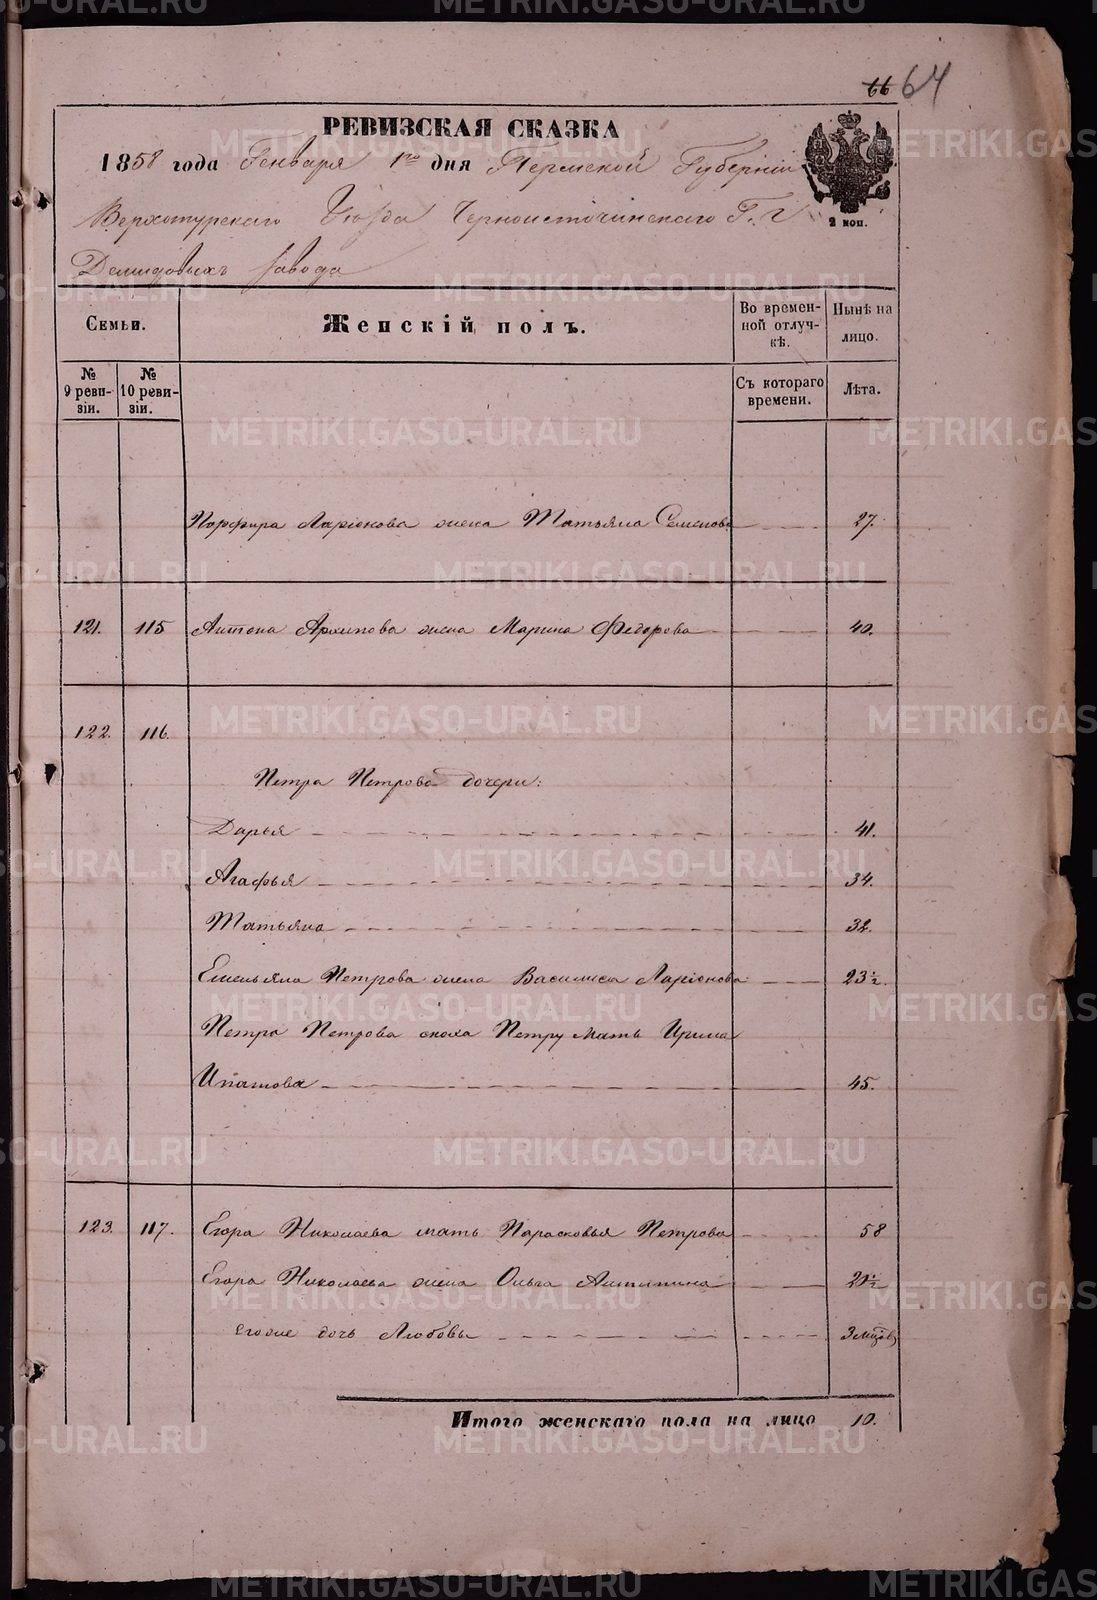 66 64
РЕВИЗСКАЯ СКАЗКА
1858 года Генваря 1го дня Пермской Губерніи
Верхотурскаго Уезда Черноисточинскаго Г. г
Демидовыхъ завода
2 коп.
Семьи. Женскій полъ. Во временной отлучкѣ. Нынѣ на лицо.
№ 9 ревизіи. № 10 ревизіи. Съ котораго времени. Лѣта.
Порфира Ларіонова жена Татьяна Семенова 27.
121. 115 Антона Архипова жена Марина Федорова 40.
122. 116.
Петра Петрова дочери:
Дарья 41.
Агафья 34.
Татьяна 32.
Емельяна Петрова жена Василиса Ларіонова 23½.
Петра Петрова сноха Петру мать Ирина
Ипатова 45.
123. 117. Егора Николаева мать Парасковья Петрова 58
Егора Николаева жена Ольга Антипина
Егоже дочь Любовь 3 мцов
Итого женскаго пола на лицо 10.
METRIKI.GASO-URAL.RU